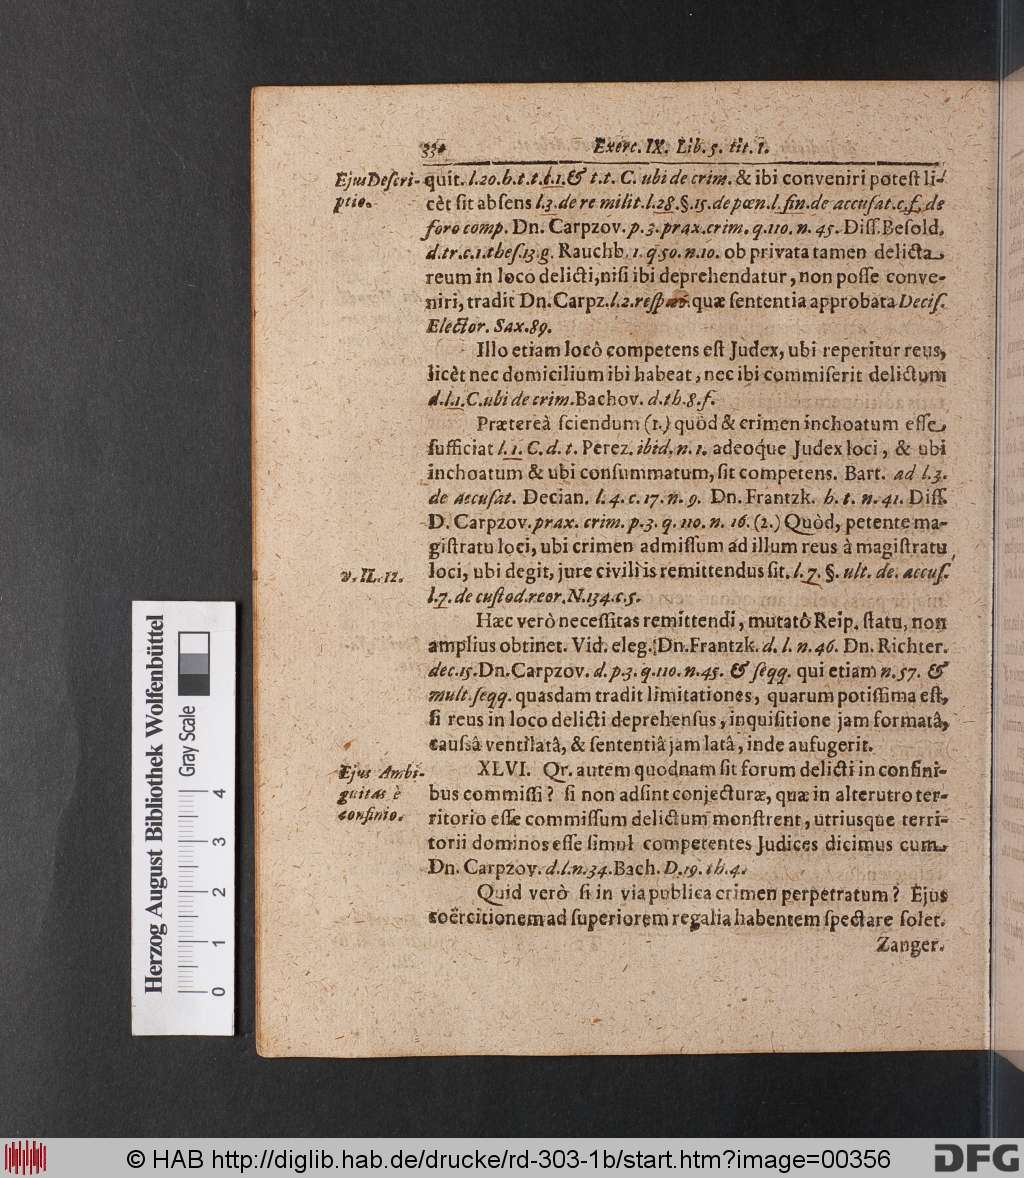 Exerc. IX. Lib. 5. tit. 1.
Ejus Descri-
ptio.
quit. l.20.h.t.t.l.1.& t.t. C. ubi de crim. & ibi conveniri potest li-
cèt sit absens l.3.de re milit.l.28.§.15.de pœn.l.fin.de accusat.c.f. de
foro comp. Dn. Carpzov. p.3.prax.crim.q.110.n.45. Diss. Besold.
d.tr.c.1.thes.13.g. Rauchb. 1.q.50.n.10. ob privata tamen delicta
reum in loco delicti, nisi ibi deprehendatur, non posse conve-
niri, tradit Dn. Carpz. l.2. quæ sententia approbata Decis.
Elector. Sax.89.
Illo etiam locô competens est Judex, ubi reperitur reus,
licèt nec domicilium ibi habeat, nec ibi commiserit delictum
d.l.1.C.ubi de crim. Bachov. d.th.8.f.
Prætereà sciendum (1.) quòd & crimen inchoatum esse
sufficiat l.1. C. d. t. Perez. ibid. n. 1. adeoq́ue Judex loci, & ubi
inchoatum & ubi consummatum, sit competens. Bart. ad l.3.
de accusat. Decian. l.4. c.17. n.9. Dn. Frantzk. h. t. n.41. Diss.
D. Carpzov. prax. crim. p.3. q. 110. n. 16. (2.) Quòd, petente ma-
gistratu loci, ubi crimen admissum ad illum reus à magistratu
v. II. 12.
loci, ubi degit, jure civili is remittendus sit. l.7. §. ult. de. accus.
l.7. de custod.reor. N.134.c.5.
Hæc verò necessitas remittendi, mutatô Reip. statu, non
amplius obtinet. Vid. eleg. Dn. Frantzk. d. l. n.46. Dn. Richter.
dec.15. Dn. Carpzov. d.p.3. q.110.n.45. & seqq. qui etiam n.57. &
mult.seqq. quasdam tradit limitationes, quarum potissima est,
si reus in loco delicti deprehensus, inquisitione jam formatâ,
caussâ ventilatâ, & sententiâ jam latâ, inde aufugerit.
Ejus Ambi-
guitas è
confinio.
XLVI. Qr. autem quodnam sit forum delicti in confini-
bus commissi? si non adsint conjecturæ, quæ in alterutro ter-
ritorio esse commissum delictum monstrent, utriusque terri-
torii dominos esse simul competentes Judices dicimus cum
Dn. Carpzov. d.l.n.34. Bach. D.19. th.4.
Quid verò si in via publica crimen perpetratum? Ejus
coërcitionem ad superiorem regalia habentem spectare solet.
Zanger.
Herzog August Bibliothek Wolfenbüttel
Gray Scale
0 1 2 3 4
© HAB http://diglib.hab.de/drucke/rd-303-1b/start.htm?image=00356
DFG